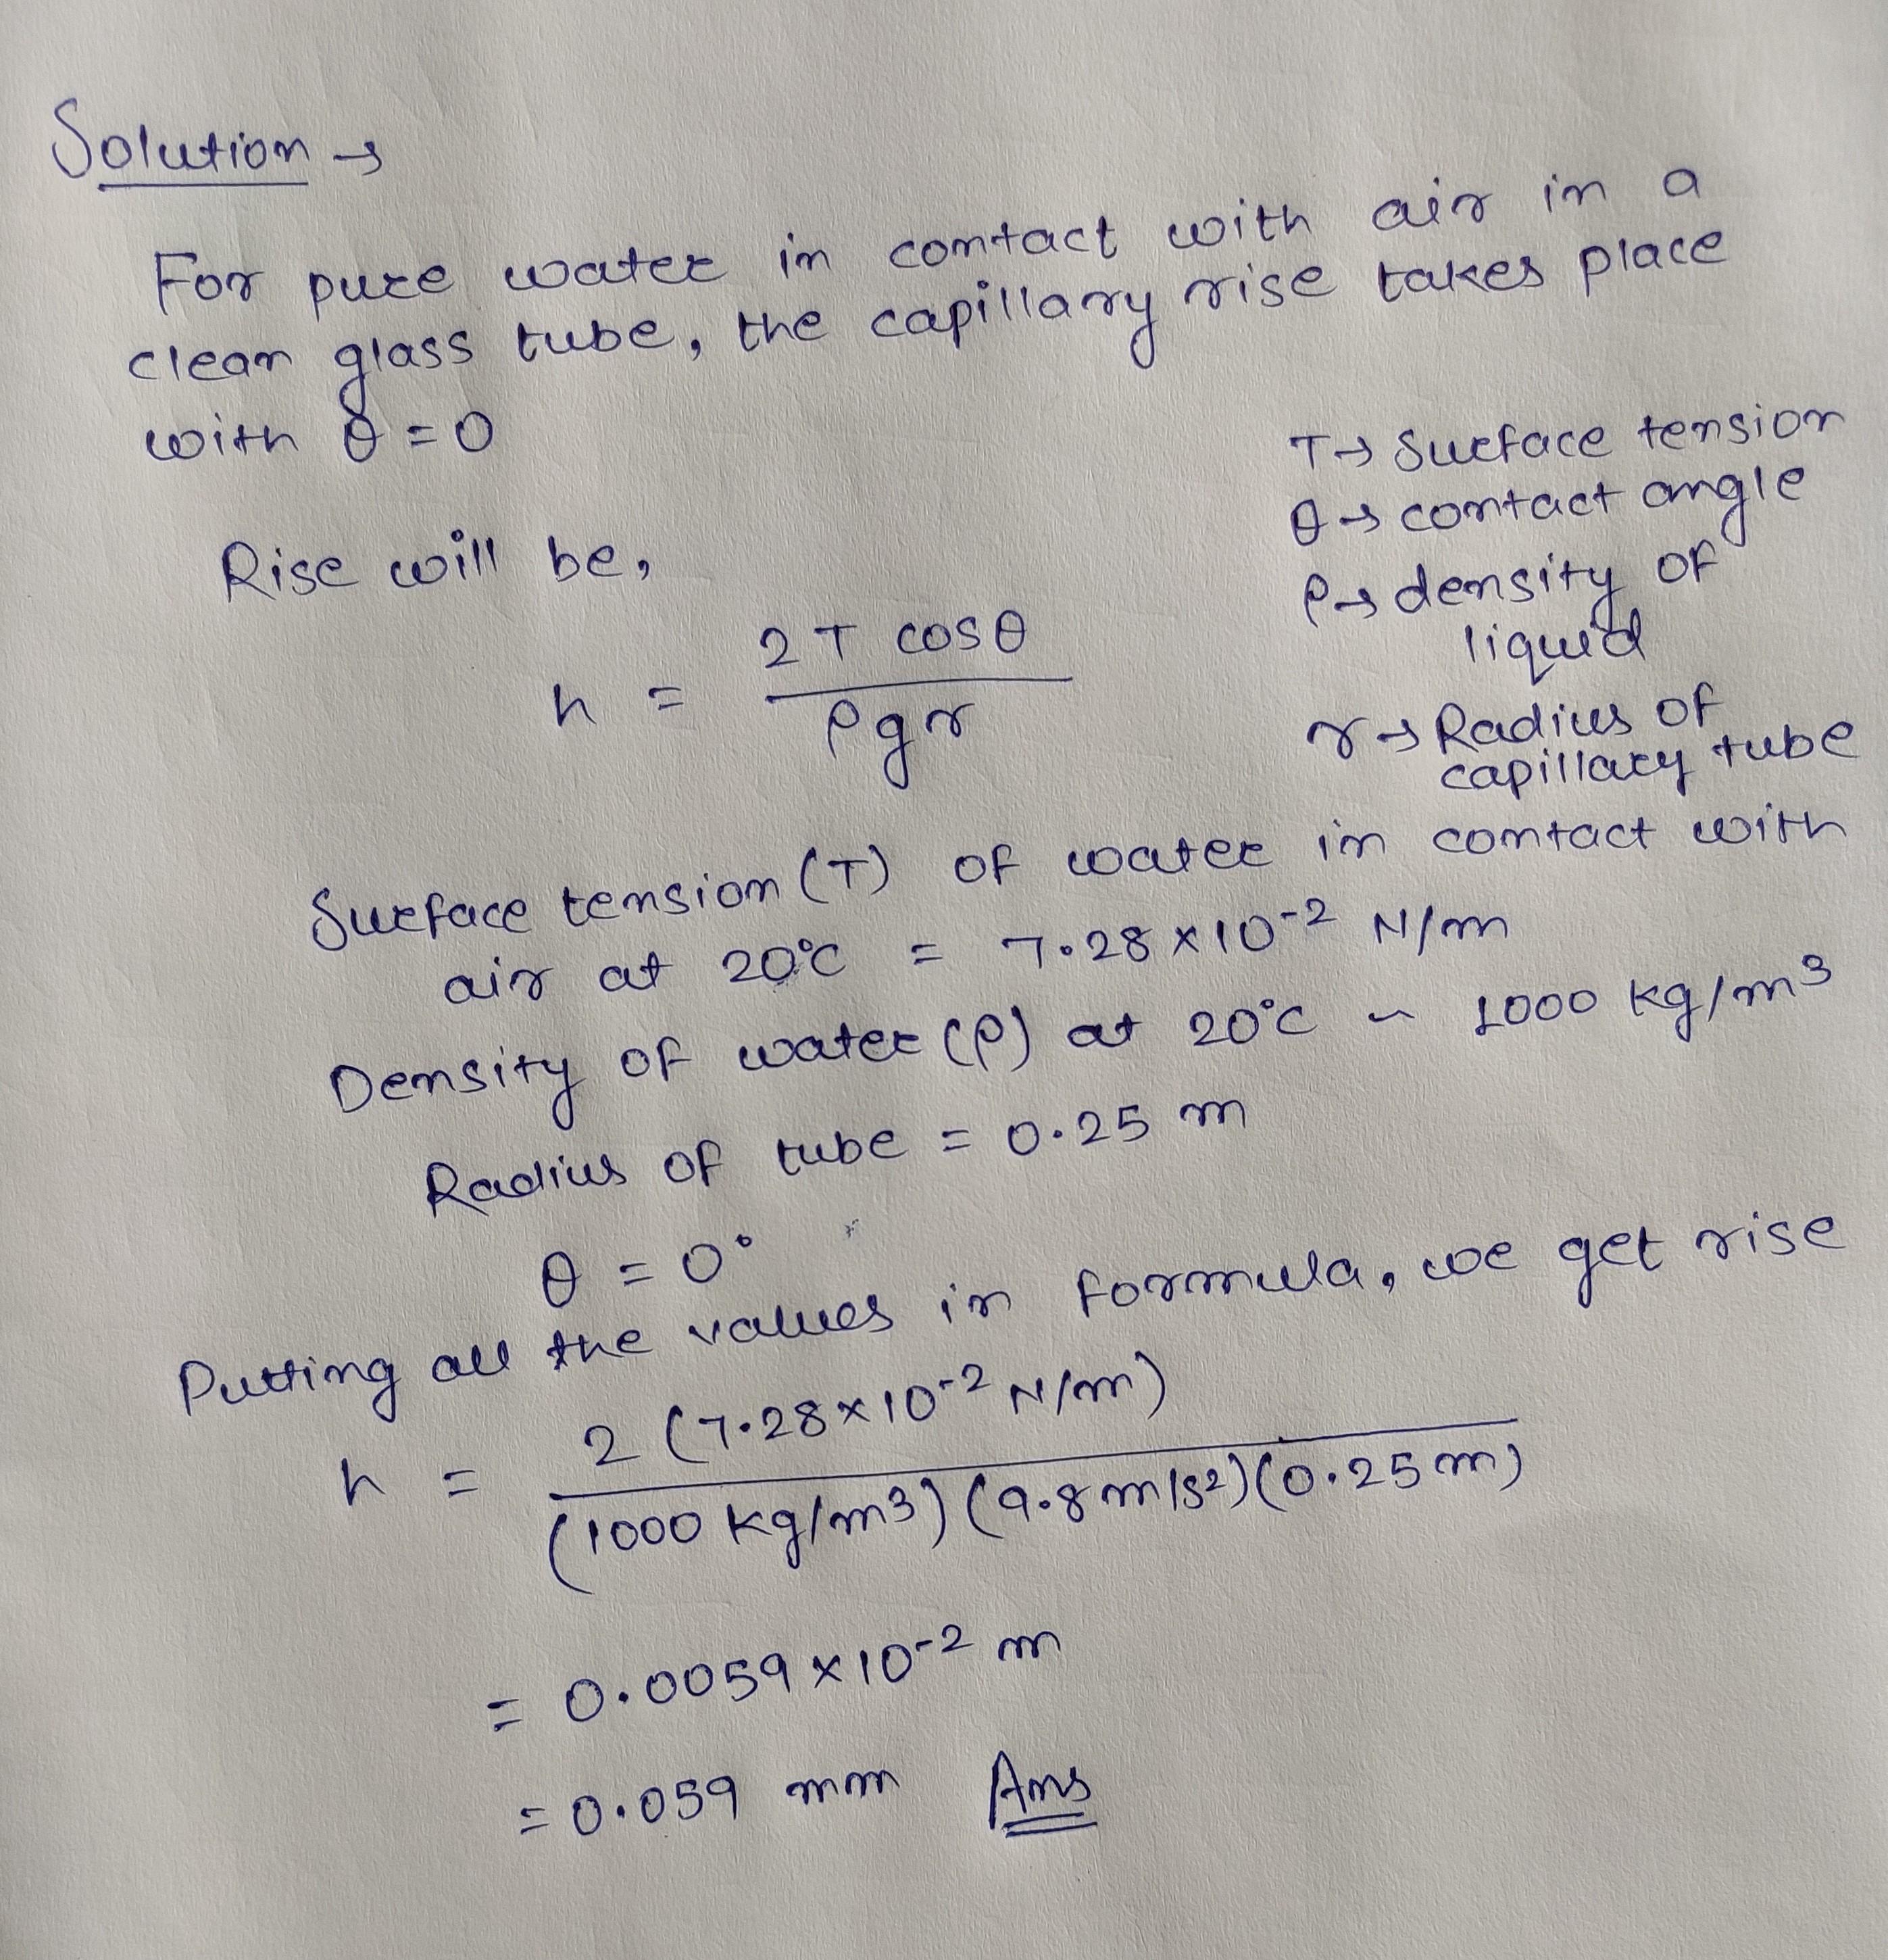 Solution →
For pure water in contact with air in a
clean glass tube, the capillary rise takes place
with θ = 0
T → Surface tension
θ → contact angle
ρ → density of
liquid
r → Radius of
capillary tube
Rise will be,
h = 2 T cos θ / ρ g r
Surface tension (T) of water in contact with
air at 20°C = 7.28 × 10⁻² N/m
Density of water (ρ) at 20°C ~ 1000 kg/m³
Radius of tube = 0.25 m
θ = 0°
Putting all the values in formula, we get rise
h = 2 (7.28 × 10⁻² N/m) / (1000 kg/m³) (9.8 m/s²) (0.25 m)
= 0.0059 × 10⁻² m
= 0.059 mm Ans